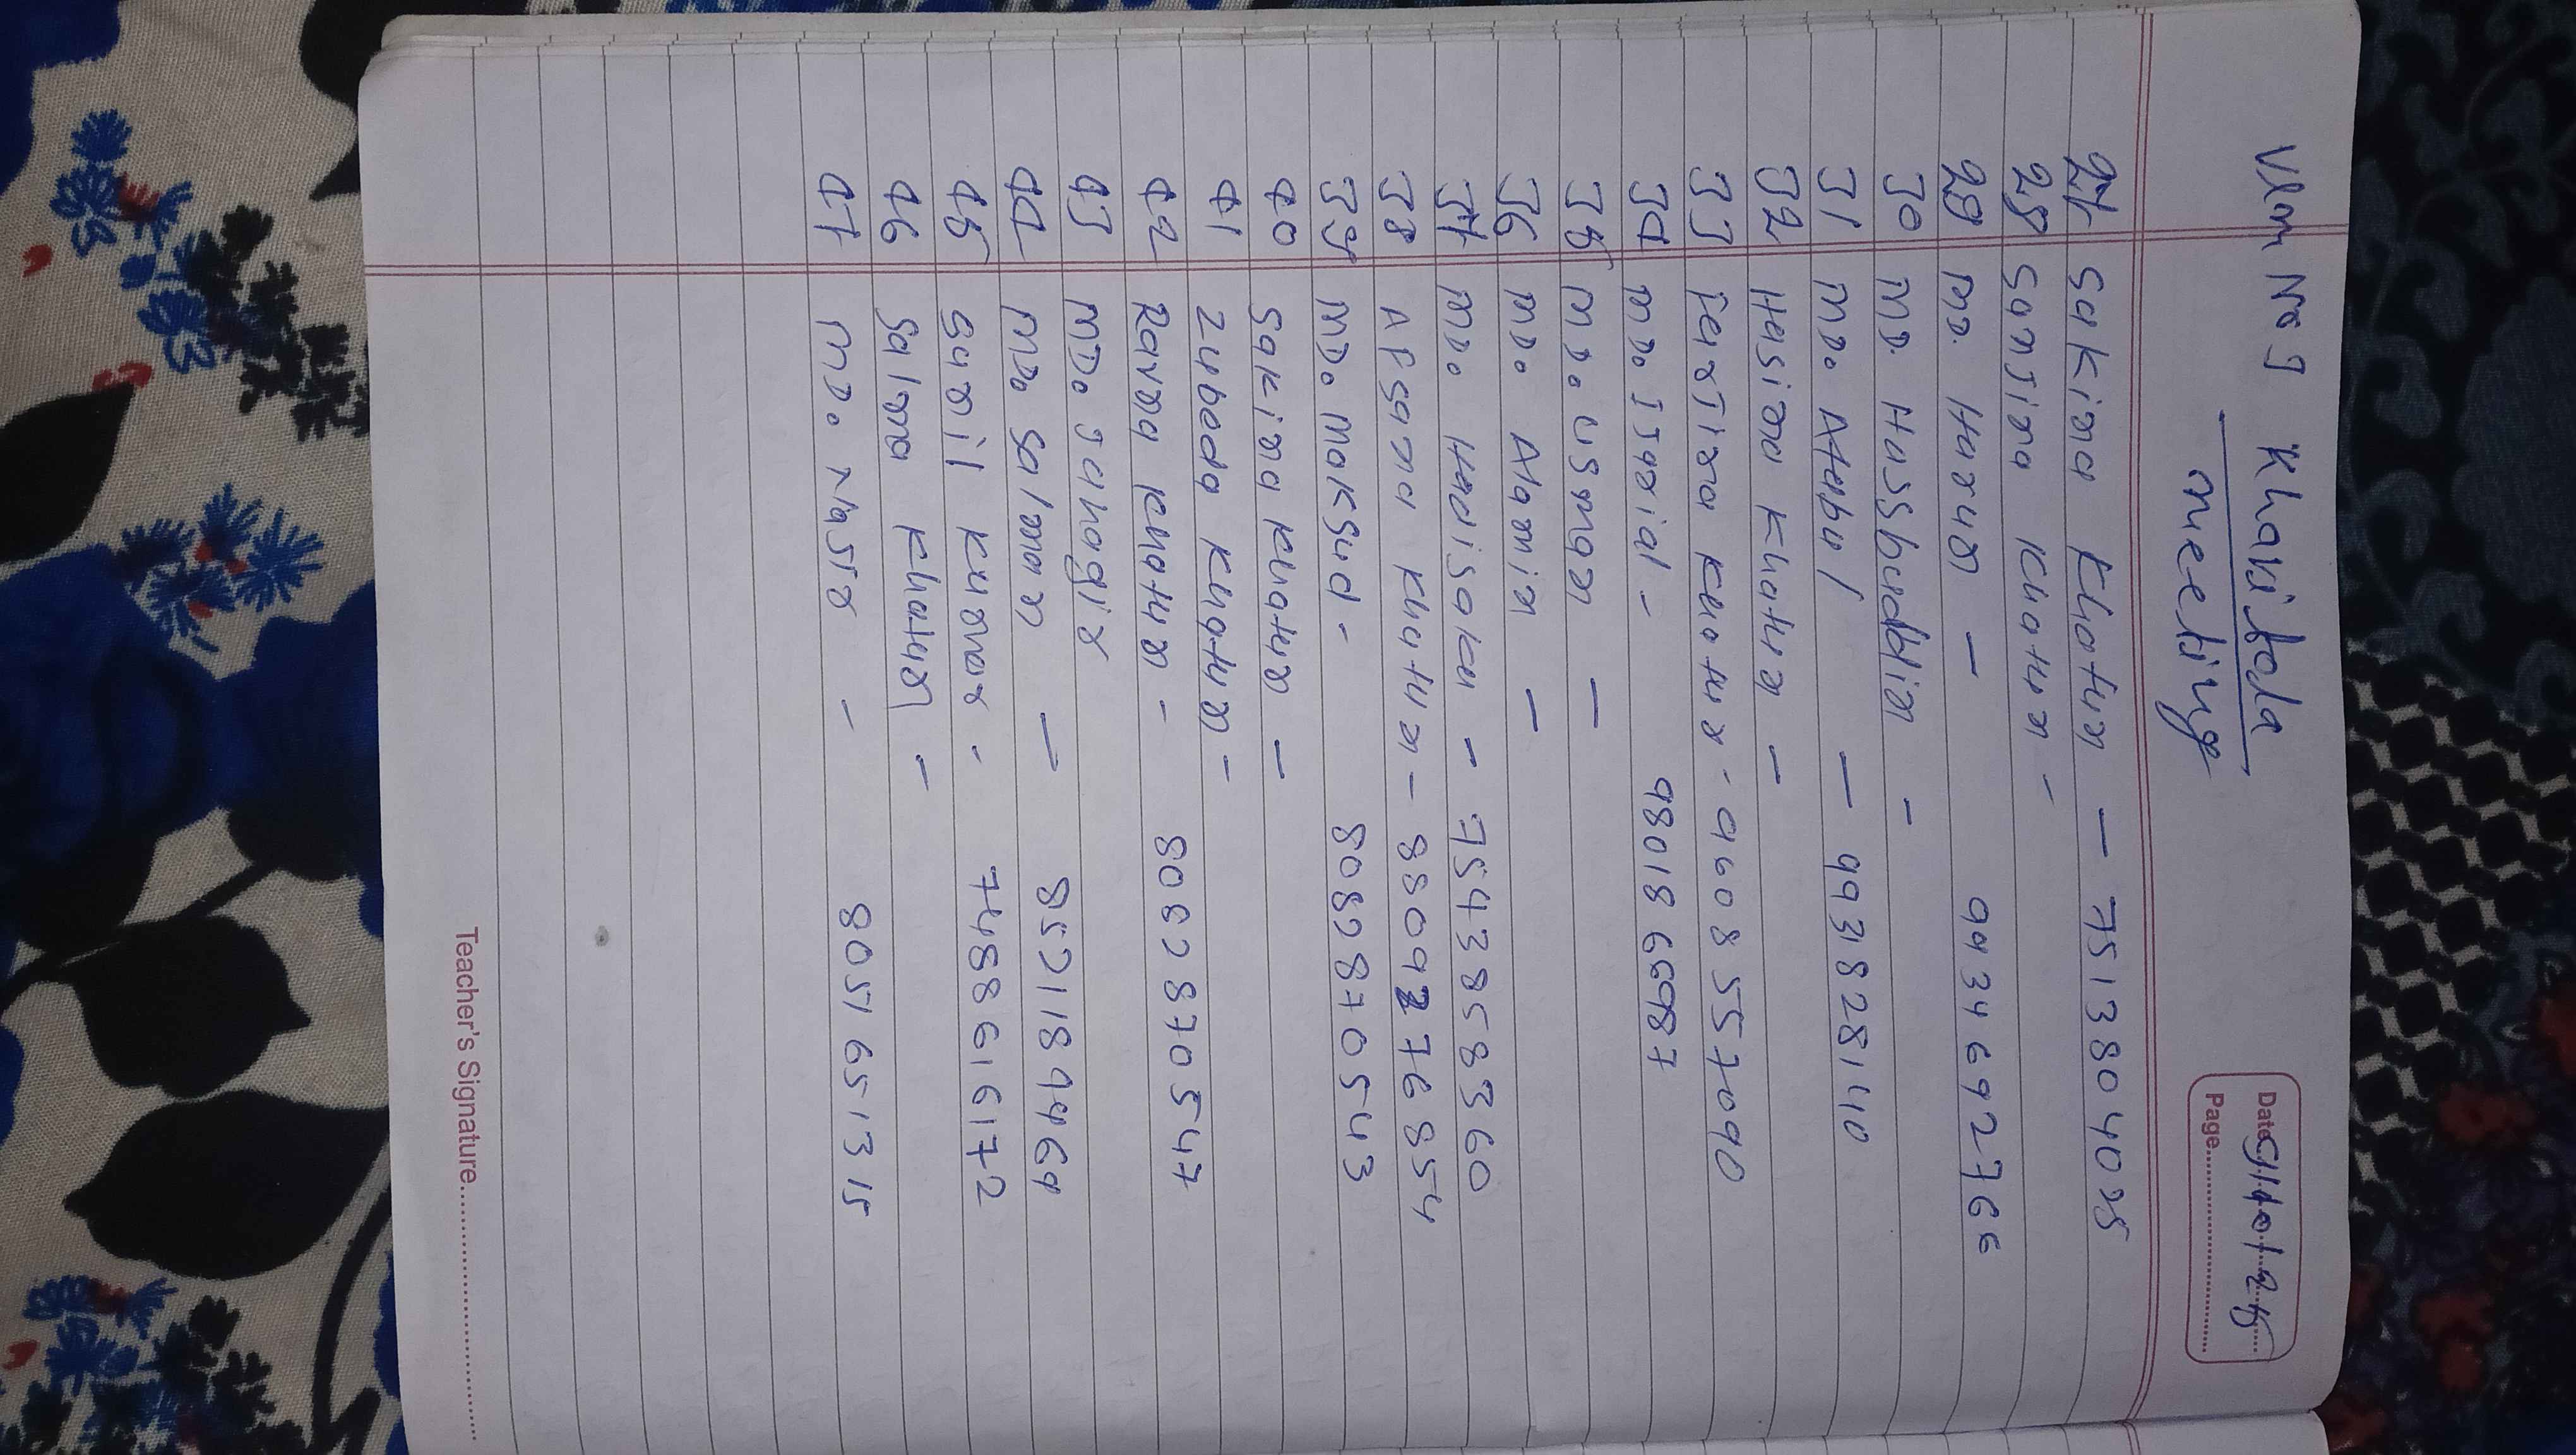 Khari tola
meeting
Date
Page
27 Sakina Khatun — 7513804025
28 Sanjina Khatun -
29 MD. Harun — 9934692766
30 MD. Hasibuddin -
31 MD. Atabul — 9931828140
32 Hasina Khatun -
33 Farjina Khatun - 9608557090
34 MD. Israial - 9801866987
35 MD. Usman —
36 MD. Alamin —
37 MD. Hadisaku - 7543858360
38 Afsana Khatun - 8809276854
39 MD. Maksud - 8082870543
40 Sakina Khatun -
41 Zubeda Khatun -
42 Ravna Khatun - 8082870547
43 MD. Jahagir
44 MD. Salman — 8521189464
45 Sunil Kumar - 7488616172
46 Salma Khatun -
47 MD. Nasir - 8051651315
Teacher's Signature